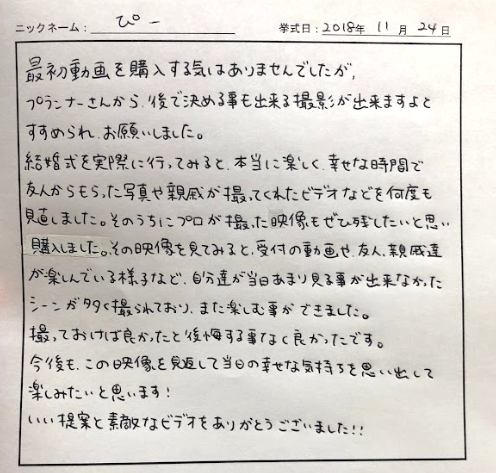 ニックネーム：ぴー 挙式日：2018年 11月 24日
最初動画を購入する気はありませんでしたが、
プランナーさんから、後で決める事も出来る撮影が出来ますよと
すすめられ、お願いしました。
結婚式を実際に行ってみると、本当に楽しく、幸せな時間で
友人からもらった写真や親戚が撮ってくれたビデオなどを何度も
見直しました。そのうちにプロが撮った映像もぜひ残したいと思い
購入しました。その映像を見てみると、受付の動画や、友人、親戚達
が楽しんでいる様子など、自分達が当日あまり見る事が出来なかった
シーンが多く撮られており、また楽しむ事ができました。
撮っておけば良かったと後悔する事なく良かったです。
今後も、この映像を見返して当日の幸せな気持ちを思い出して
楽しみたいと思います！
いい提案と素敵なビデオをありがとうございました!!